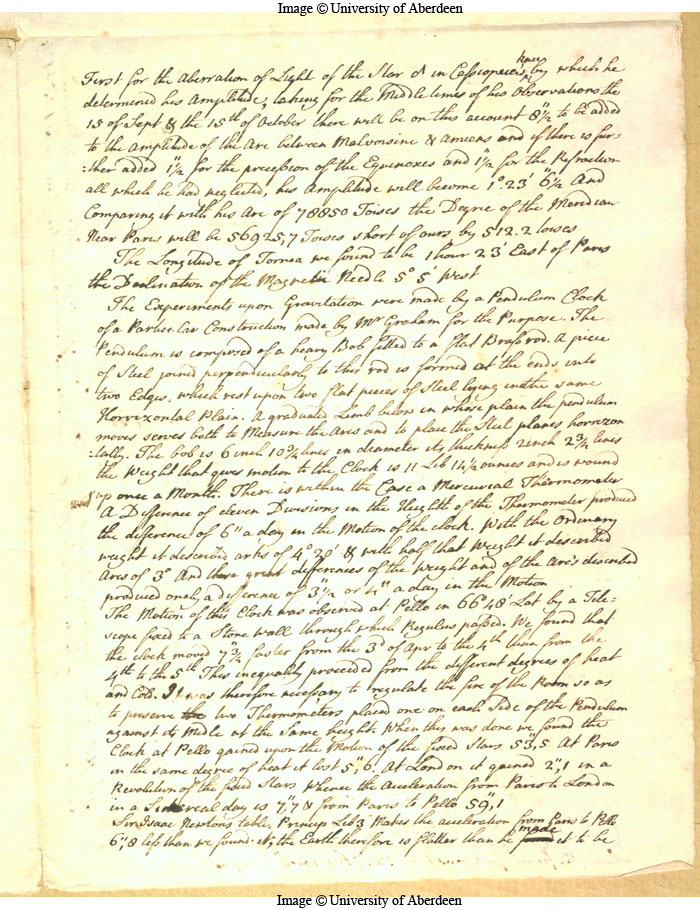 Image © University of Aberdeen
First for the Aberration of Light of the Star α in Cassiopeia's knee, by which he
determined his Amplitude, taking for the Middle times of his Observations the
15 of Sept & the 15th of October there will be on this account 8"½ to be added
to the Amplitude of the Arc between Malvoisine & Amiens and if there is fur=
:ther added 1"½ for the precession of the Equenoxes and 1"½ for the Refraction
all which he had neglected, his Amplitude will become 1°.23' 6"½ And
Comparing it with his Arc of 78850 Toises the Degree of the Meridian
Near Paris will be 56925,7 Toises short of ours by 512.2 toises
The Longitude of Tornea we found to be 1 hour 23' East of Paris
the Declination of the Magnetic Needle 5° 5' West
The Experiments upon Gravitation were made by a Pendulum Clock
of a Particular Construction made by Mr Graham for the Purpose. The
Pendulum is composed of a heavy Bob fitted to a flat Brass rod. A piece
of Steel joined perpendicularly to this rod is formed at the ends into
two Edges, which rest upon two flat pieces of Steel lying in the same
Horrizontal Plain. A graduated Limb below in whose plain the pendulum
moves serves both to Measure the Arcs and to place the Steel planes horrizon
:tally. The bob is 6 inch 10¾ lines in diameter its thickness 2 inch 2¾ lines
the Weight that gives motion to the Clock is 11 Lib 14½ ounces and is wound
up once a Month. There is within the Case a Mercurial Thermometer
A Difference of eleven Divisions in the Heighth of the Thermometer produced
the difference of 6" a day in the Motion of the clock. With the Ordinary
weight it described arks of 4° 20' & with half that Weight it described
Arcs of 3° And these great differences of the weight and of the Arcs described
produced only a difference of 3"½ or 4" a day in the Motion
The Motion of this Clock was observed at Pello in 66°48' Lat by a Tele=
scope fixed to a Stone wall through which Regulus passed. We found that
the clock moved 7"¾ faster from the 3d of Apr to the 4th than from the
4th to the 5th This inequality proceeded from the different degrees of heat
and Cold. It was therefore necessary to regulate the fire of the Room so as
to preserve the two Thermometers placed one on each Side of the Pendulum
against its Midle at the Same height. When this was done we found the
Clock at Pello gained upon the Motion of the fixed Stars 53",5 At Paris
in the same degree of heat it lost 5",6. At London it gained 2",1 in a
Revolution of the fixed Stars Whence the Aceleration from Paris to London
in a Sidereal day is 7",7 & from Paris to Pello 59",1
Sir Isaac Newtons table, Princip Lib 3 Makes the aceleration from Paris to Pello
6",8 less than we found it, the Earth therefore is flatter than he made it to be
Image © University of Aberdeen